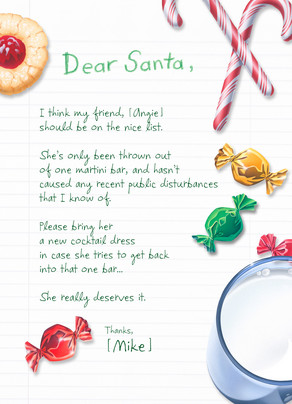 Dear Santa,
I think my friend, [Angie]
should be on the nice list.
She's only been thrown out
of one martini bar, and hasn't
caused any recent public disturbances
that I know of.
Please bring her
a new cocktail dress
in case she tries to get back
into that one bar...
She really deserves it.
Thanks,
[Mike]